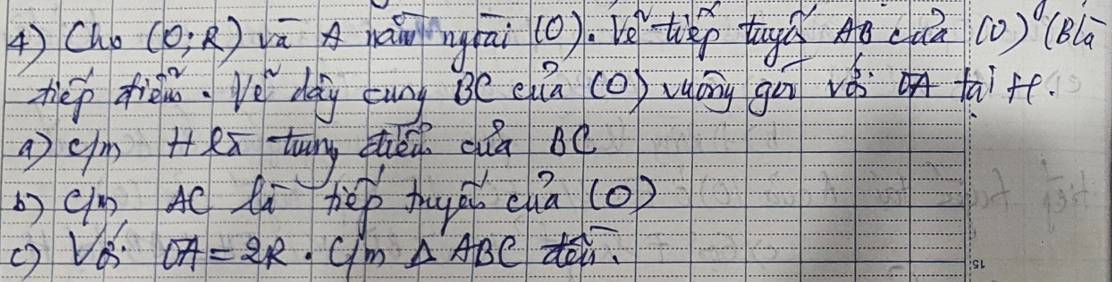 4) Cho (O;R) và A nằm ngoài (O). Vẽ tiếp tuyến AB của (O) (B là
tiếp điểm. Vẽ dây cung BC của (O) vuông góc với OA tại H.
a) c/m H là trung điểm của BC
b) C/m AC là tiếp tuyến của (O)
c) Với OA = 2R. C/m Δ ABC đều.
15